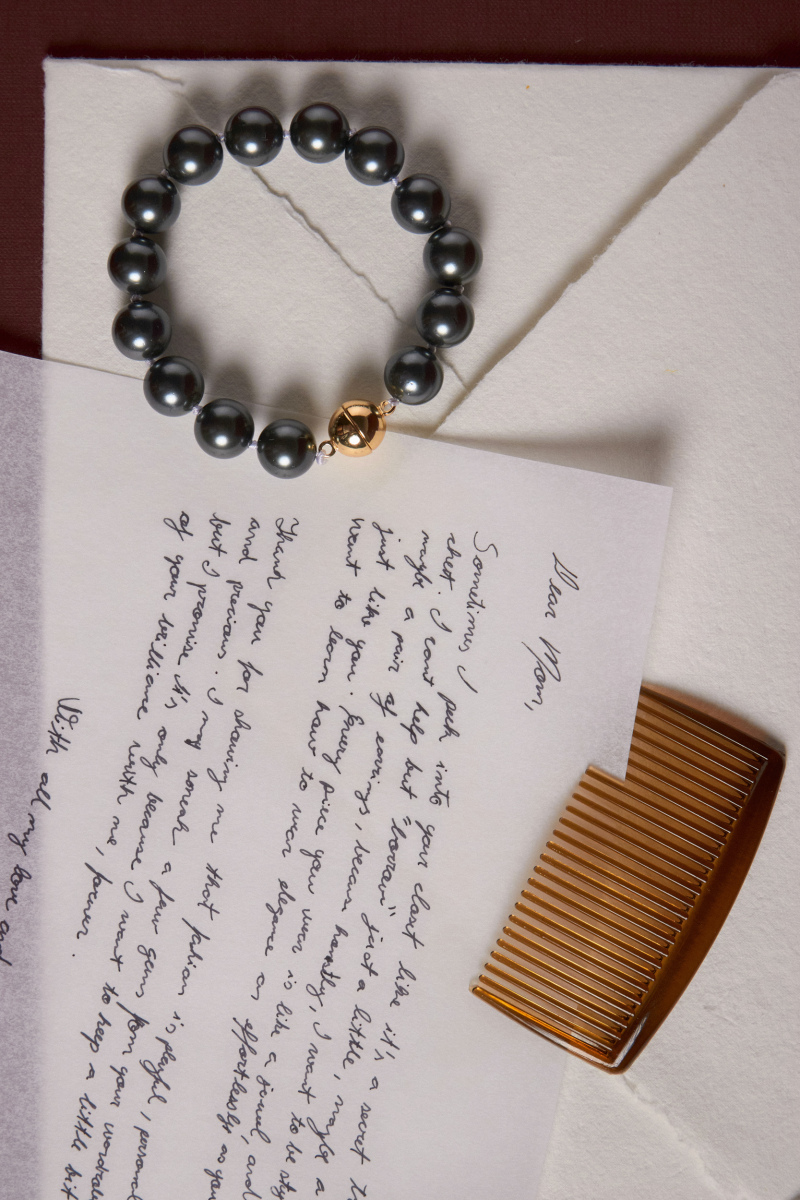 Dear Mom,
Sometimes I peek into your closet like it's a secret
chest. I can't help but "borrow" just a little, maybe a
maybe a pair of earrings, because honestly, I want to be
just like you. Every piece you wear is like a jewel, and
want to learn how to wear elegance as effortlessly as you
Thank you for showing me that fashion is playful, personal
and precious. I may sneak a few gems from your wardrobe
but I promise it's only because I want to keep a little bit
of your brilliance with me, forever.
With all my love and